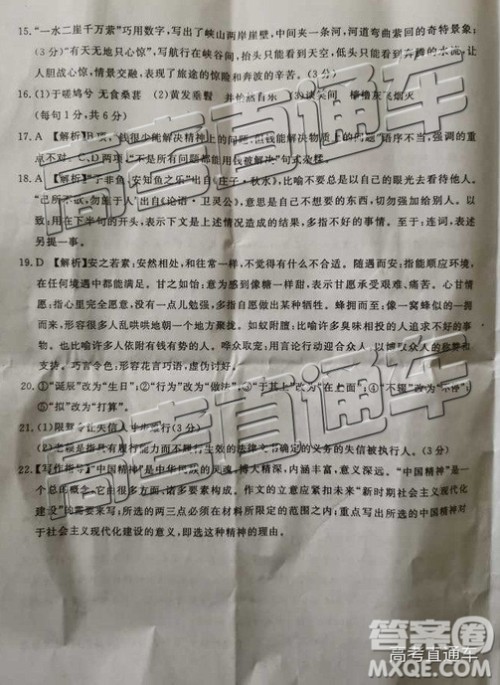 15.“一水二崖千万萦”巧用数字，写出了峡山两岸崖壁，中间夹一条河，河道弯曲萦回的奇特景象；
(3分)“有天无地只心惊”，写航行在峡谷间，抬头只能看到天空，低头只能看到奔腾的水流，让
人胆战心惊，情景交融，表现了旅途的惊险和奔波的辛苦。(3分)
16.(1)于嗟鸠兮 无食桑葚 (2)黄发垂髫 并怡然自乐 (3)谈笑间 樯橹灰飞烟灭
(每句1分，共6分)
17.A 【解析】B项，“钱很少能解决精神上的问题，但钱能解决物质上的问题”语序不当，强调的重
点不对。C、D两项，“不是所有问题都能用钱被解决”句式杂糅。
18.A 【解析】“子非鱼，安知鱼之乐”出自《庄子·秋水》，比喻不要总是以自己的眼光去看待他人。
“己所不欲，勿施于人”出自《论语·卫灵公》，意思是自己不想要的东西，切勿强加给别人。以
致：用在下半句的开头，表示下文是上述情况造成的结果，多指不好的事情。至于：连词，表述
另提一事。
19.D 【解析】安之若素：安然相处，和往常一样，不觉得有什么不合适。随遇而安：指能顺应环境，
在任何境遇中都能满足。甘之如饴：意为感到像糖一样甜，表示甘愿承受艰难、痛苦。心甘情
愿：指心里完全愿意，没有一点儿勉强，多指自愿做出某种牺牲。蜂拥而至：像一窝蜂似的一
拥而来，形容很多人乱哄哄地朝一个地方聚拢。如蚁附膻：比喻许多臭味相投的人追求不好的
事物，也比喻许多人依附有钱有势的人。哗众取宠：用言论行动迎合众人，以博取众人的称赞和
支持。巧言令色：形容花言巧语，虚伪讨好。
20.①“诞辰”改为“生日”；②“行为”改为“做法”；③“于其上”改为“在上面”；④“不辍”改为“不停”；
⑤“拟”改为“打算”。
21.(1)限制令让失信人寸步难行(3分)
(2)老赖是指具有履行能力而不履行生效的法律文书确定的义务的失信被执行人。(3分)
22.【写作指导】“中国精神”是中华民族的灵魂，博大精深，内涵丰富，意义深远。“中国精神”是一个
总汇概念，内涵丰富，诸多要素构成。作文的立意应紧扣未来“新时期社会主义现代化
建设”的需要来写；所选的两三点必须在材料所限定的范围之内；重点写出所选的中国精神对
于社会主义现代化建设的意义，即选这种精神的理由。
高考直通车
高考直通车
高考直通车
答案圈
高考直通车
MXQE.COM